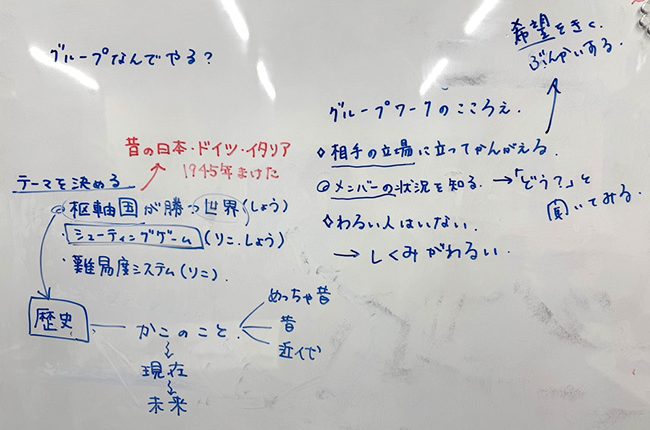 グループなんでやる?
昔の日本・ドイツ・イタリア
1945年まけた
テーマを決める
枢軸国が勝つ世界(しょう)
シューティングゲーム(りこ.しょう)
・難易度システム(りこ).
歴史
かこのこと
めっちゃ昔
昔
近代
現在
未来
希望をきく.
ぶんかいする.
グループワークのこころえ.
◇相手の立場に立ってかんがえる.
◎メンバーの状況を知る.→「どう?」と
聞いてみる.
◇わるい人はいない.
→しくみがわるい.